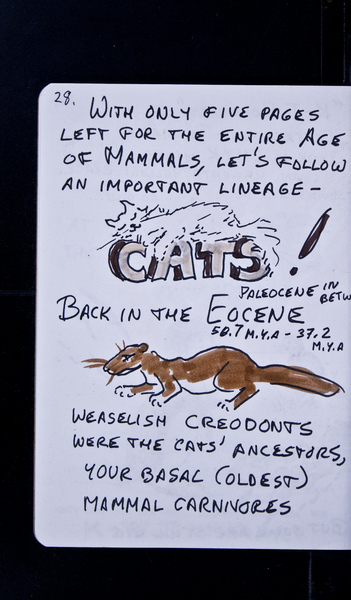 28. WITH ONLY FIVE PAGES
LEFT FOR THE ENTIRE AGE
OF MAMMALS, LET'S FOLLOW
AN IMPORTANT LINEAGE –
CATS!
PALEOCENE IN
BETW
BACK IN THE EOCENE
58.7 M.Y.A – 37.2
M.Y.A
WEASELISH CREODONTS
WERE THE CATS' ANCESTORS,
YOUR BASAL (OLDEST)
MAMMAL CARNIVORES